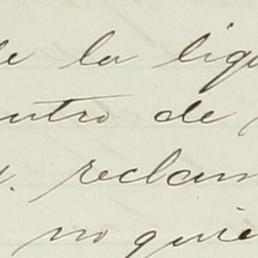 de la liqu
entro de
reclam
no quie